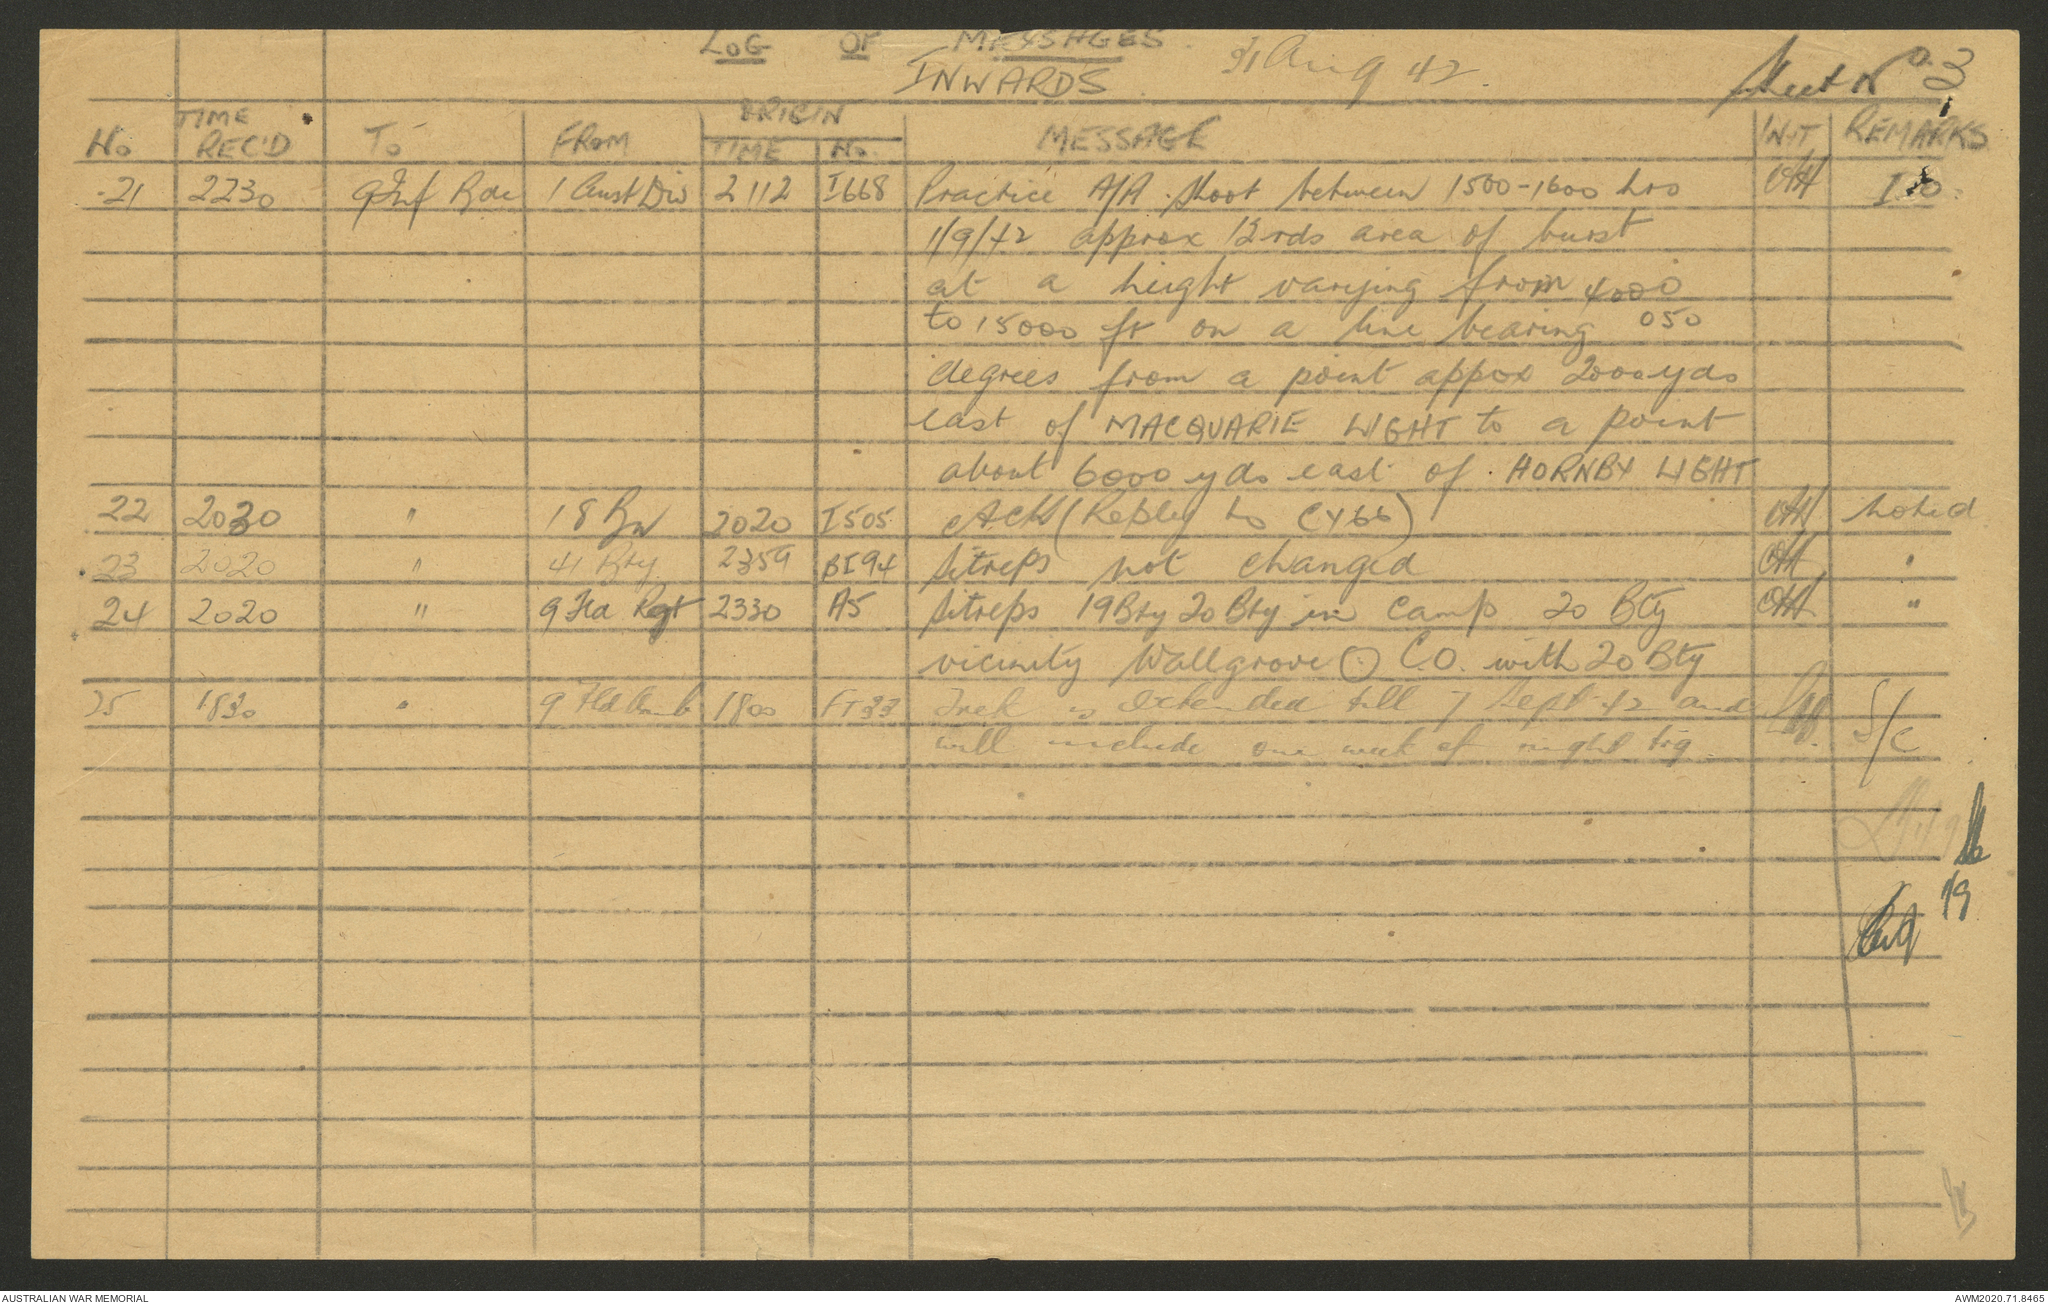 LOG OF MESSAGES
INWARDS
31 Aug 42
Sheet No 3
No TIME REC'D To FROM ORIGIN TIME No. MESSAGE INIT REMARKS
21 2230 9 Inf Bde 1 Aust Div 2112 I668 Practice A/A shoot between 1500-1600 hrs IO
1/9/42 approx 12 rds area of burst
at a height varying from 4000
to 15000 ft on a line bearing 050
degrees from a point appox 2000 yds
east of MACQUARIE LIGHT to a point
about 6000 yds east of HORNBY LIGHT
22 2030 " 18 Bn 2020 I505 ACK (Reply to CY66) noted
23 2020 " 41 Bty 2359 BI94 Sitreps not changed "
24 2020 " 9 Fld Rgt 2330 A5 Sitreps 19 Bty 20 Bty in camp 20 Bty "
vicinity Wallgrove (.) C.O. with 20 Bty
25 1830 " 9 Fld Amb 1800 FT33 Trek is extended till 7 Sept 42 and S/C
will include one week of night trg.
1/9
AUSTRALIAN WAR MEMORIAL
AWM2020.71.8465